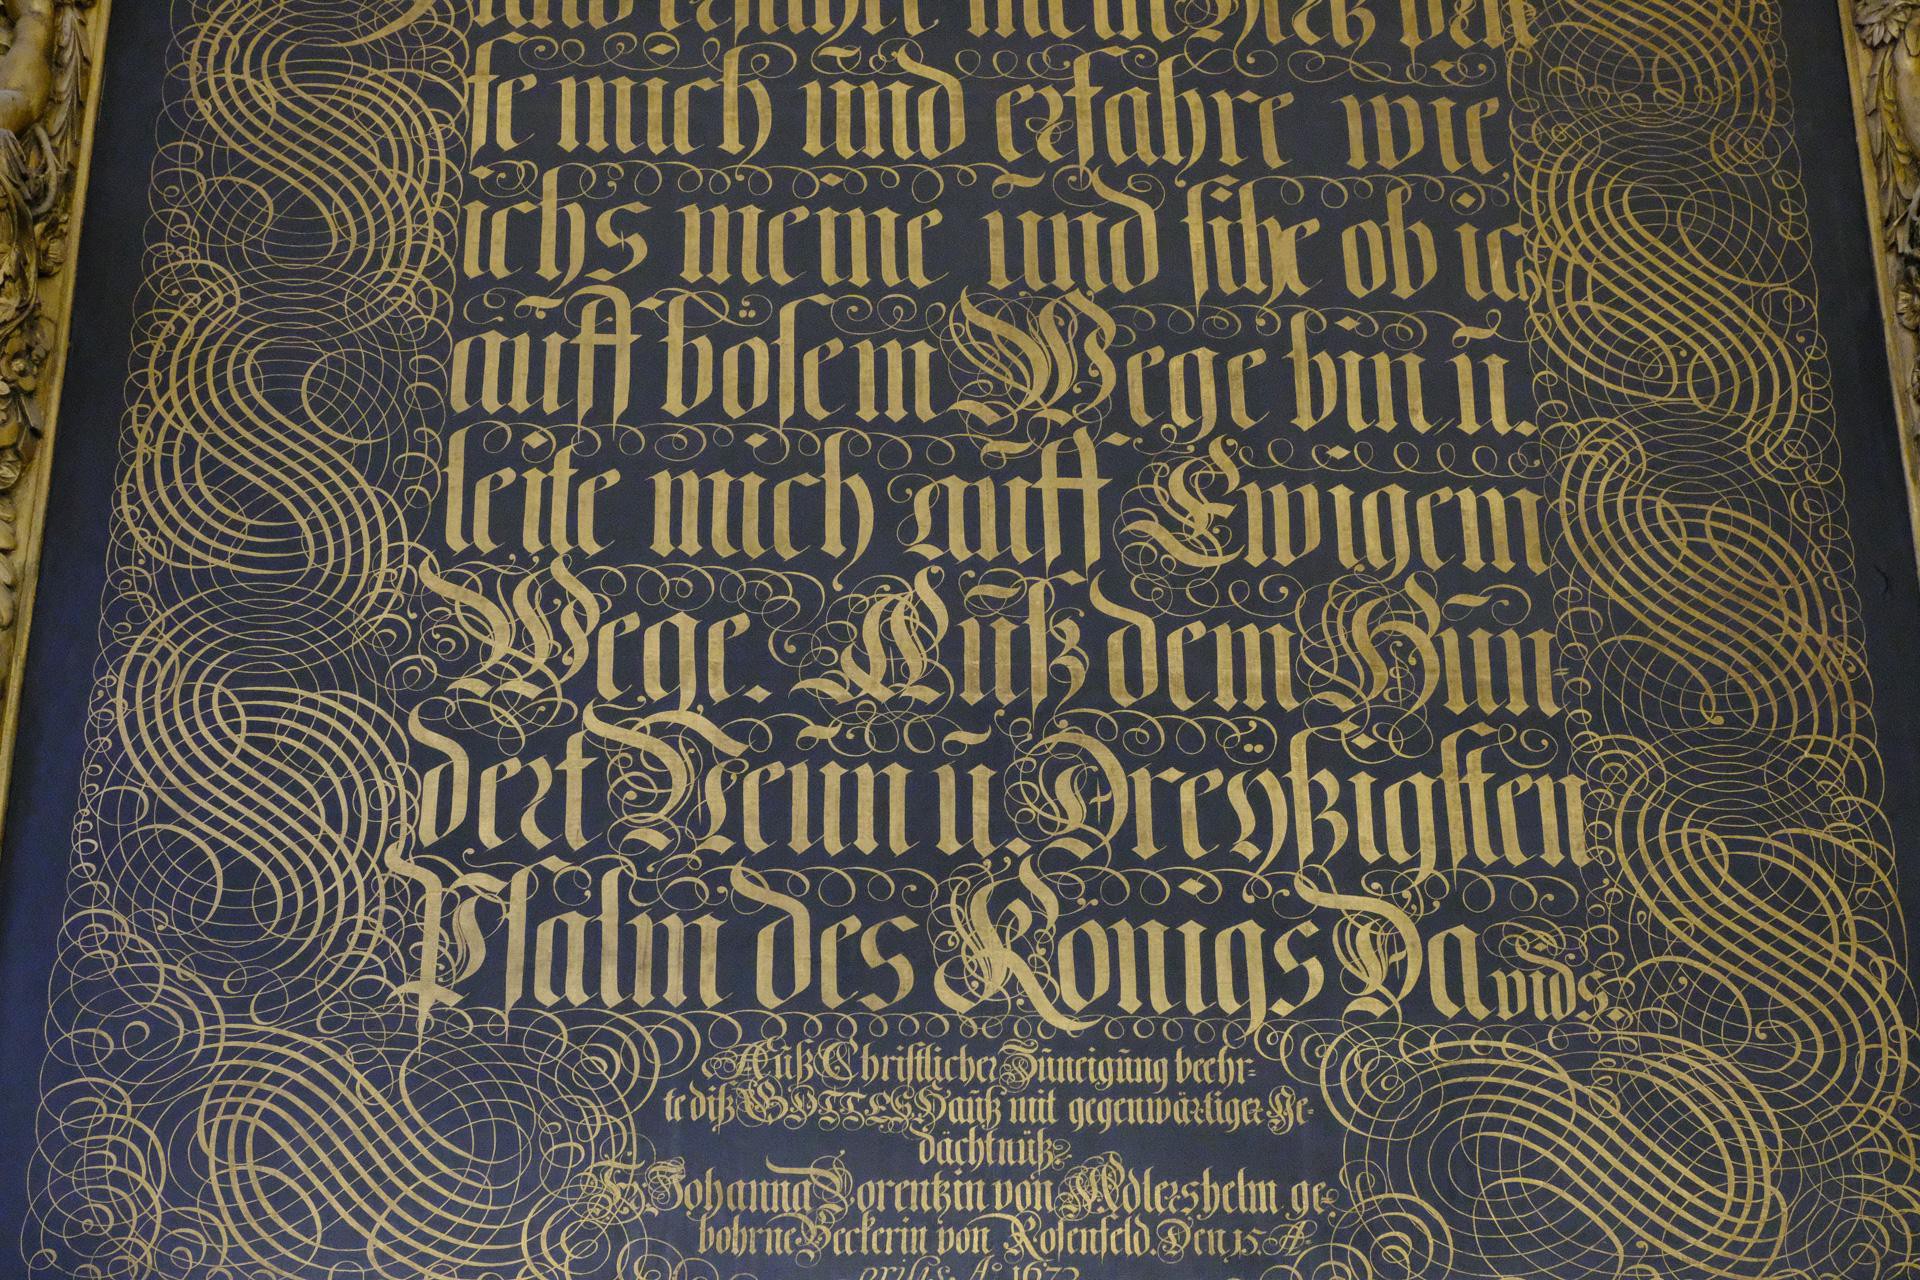 und erfahre mein Hertz prü-
fe mich und erfahre wie
ichs meine und sihe ob ich
auff bösem Wege bin ū.
leite mich auff Ewigem
Wege. Auß dem Hun
dert Neun ū. Dreyßigsten
Psalm des Königs Davids.
Auß Christlicher Zuneigung beehr=
te diß GOTTES Hauß mit gegenwärtiger Ge-
dächtnüß
F. Johanna Lorentzin von Adlershelm ge=
bohrne Beckerin von Rosenfeld. Den 15. A-
prilis. Aº 167